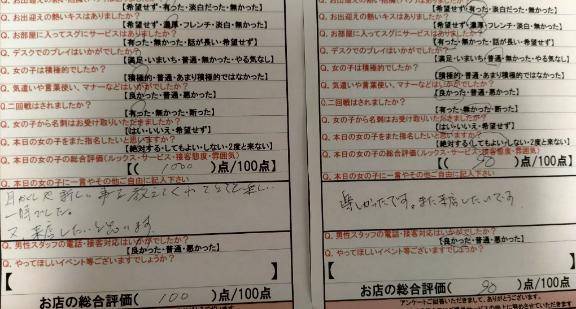 Q. お出迎えの熱いキスはありましたか?
【希望せず・濃厚・フレンチ・淡白・無かった】
Q. お部屋に入ってスグにサービスはありましたか?
【有った・無かった・話が長い・希望せず】
Q. デスクでのプレイはいかがでしたか?
【満足・いまいち・普通・無かった・やる気なし】
Q. 女の子は積極的でしたか?
【積極的・普通・あまり積極的ではなかった】
Q. 気遣いや言葉使い、マナーなどはいかがでしたか?
【良かった・普通・悪かった】
Q. 二回戦はされましたか?
【有った・無かった・断った】
Q. 女の子から名刺はお受け取りいただきましたか?
【はい・いいえ・希望せず】
Q. 本日の女の子をまた指名したいと思いますか?
【絶対する・してもよい・しない・2度と来ない】
Q. 本日の女の子の総合評価(ルックス・サービス・接客態度・雰囲気)
【( 1000 )点/100点】
Q. 本日の女の子に一言やその他ご自由に記入下さい
一時でした。
Q. 男性スタッフの電話・接客対応はいかがでしたか?
【良かった・普通・悪かった】
Q. やってほしいイベント等ございますでしょうか?
【 】
お店の総合評価( 100 )点/100点
【希望せず・有った・淡白だった・無かった】
Q. お出迎えの熱いキスはありましたか?
【希望せず・濃厚・フレンチ・淡白・無かった】
Q. お部屋に入ってスグにサービスはありましたか?
【有った・無かった・話が長い・希望せず】
Q. デスクでのプレイはいかがでしたか?
【満足・いまいち・普通・無かった・やる気なし】
Q. 女の子は積極的でしたか?
【積極的・普通・あまり積極的ではなかった】
Q. 気遣いや言葉使い、マナーなどはいかがでしたか?
【良かった・普通・悪かった】
Q. 二回戦はされましたか?
【有った・無かった・断った】
Q. 女の子から名刺はお受け取りいただきましたか?
【はい・いいえ・希望せず】
Q. 本日の女の子をまた指名したいと思いますか?
【絶対する・してもよい・しない・2度と来ない】
Q. 本日の女の子の総合評価(ルックス・サービス・接客態度・雰囲気)
【( 90 )点/100点】
Q. 本日の女の子に一言やその他ご自由に記入下さい
楽しかったです。また来店したいです
Q. 男性スタッフの電話・接客対応はいかがでしたか?
【良かった・普通・悪かった】
Q. やってほしいイベント等ございますでしょうか?
【 】
お店の総合評価( 90 )点/100点
アンケートご回答いただきまして、ありがとうございます。